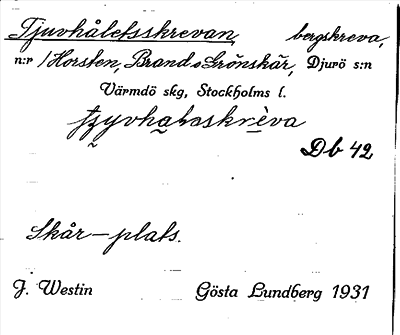 Tjuvhåletsskrevan, bergskreva,
n:r 1 Horsten, Brand o Grönskär, Djurö s:n
Värmdö skg, Stockholms l.
Db 42
Skår – plats.
J. Westin Gösta Lundberg 1931